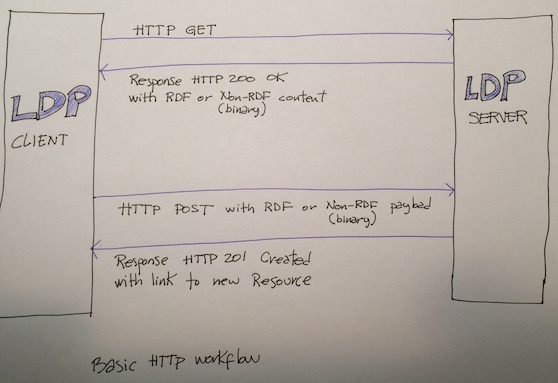 HTTP GET
Response HTTP 200 OK
with RDF or Non-RDF content
(binary)
LDP
CLIENT
LDP
SERVER
HTTP POST with RDF or Non-RDF payload
(binary)
Response HTTP 201 Created
with link to new Resource
Basic HTTP workflow